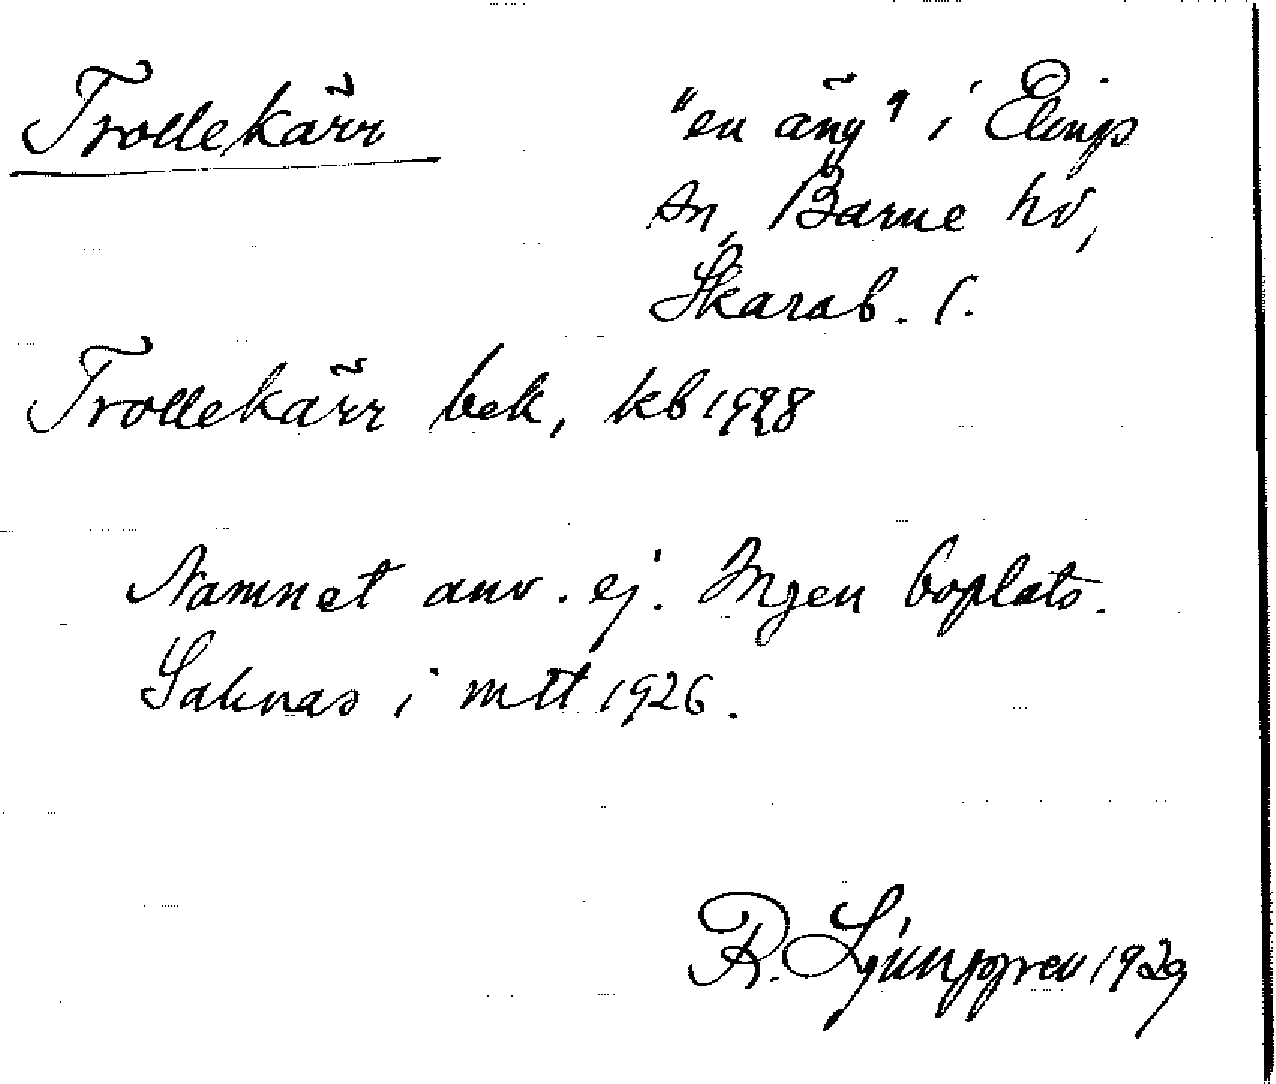 Trollekärr
"en äng" i Elings
sn, Barne hd,
Skarab. l.
Trollekärr bek, kb 1928
Namnet anv. ej. Ingen boplats.
Saknas i mtl 1926.
R. Ljunggren 1929